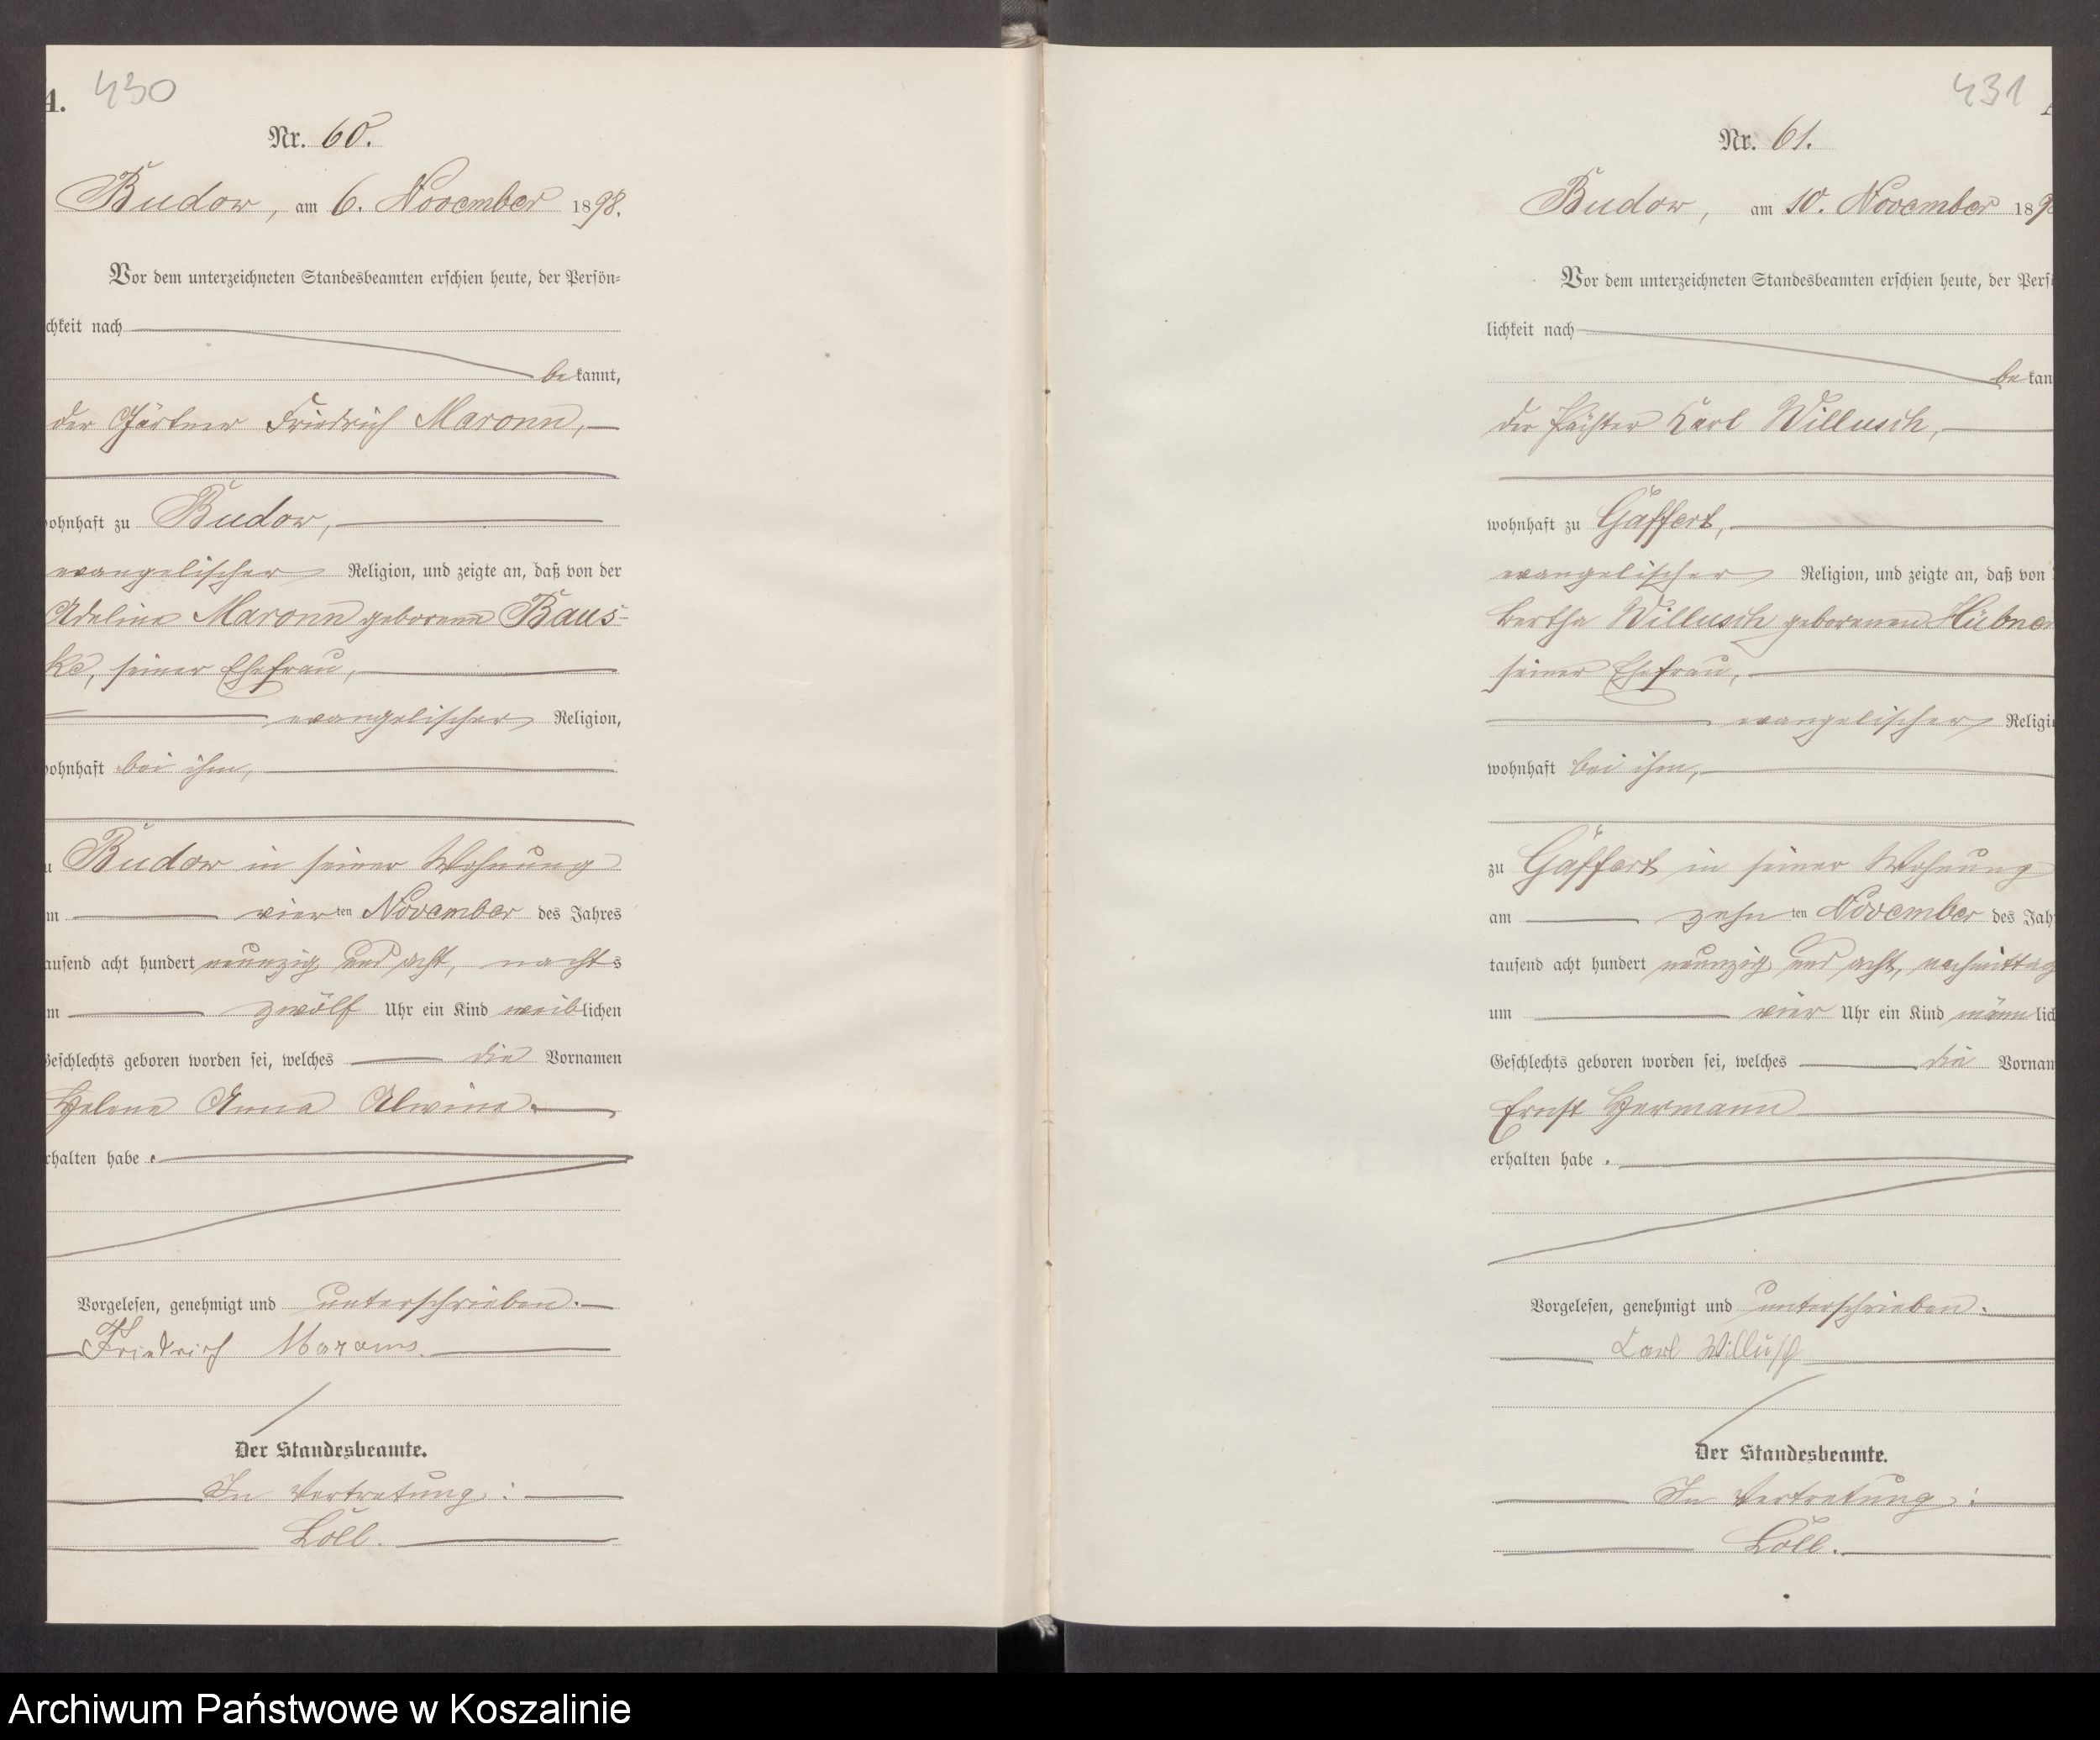 A. 430
Nr. 60.
Budow, am 6. November 1898.
Vor dem unterzeichneten Standesbeamten erschien heute, der Persön-
chkeit nach
bekannt,
der Gärtner Friedrich Maronn,
ohnhaft zu Budow,
evangelischer Religion, und zeigte an, daß von der
Adeline Maronn geborene Baus-
ke, seiner Ehefrau,
evangelischer Religion,
ohnhaft bei ihm,
u Budow in seiner Wohnung
m vierten November des Jahres
ausend acht hundert neunzig und acht, nachts
m zwölf Uhr ein Kind weiblichen
Geschlechts geboren worden sei, welches die Vornamen
Helene Anna Alwine
rhalten habe.
Vorgelesen, genehmigt und unterschrieben.
Friedrich
Der Standesbeamte.
In Vertretung:
Löll.
431
Nr. 61.
Budow, am 10. November 189
Vor dem unterzeichneten Standesbeamten erschien heute, der Pers
lichkeit nach
bekan
der Pächter Karl Willusch,
wohnhaft zu Gaffert,
evangelischer Religion, und zeigte an, daß von
Bertha Willusch geborenen Hübner
seiner Ehefrau,
evangelischer Religi
wohnhaft bei ihm,
zu Gaffert in seiner Wohnung
am zehnten November des Jah
tausend acht hundert neunzig und acht, nachmittag
um vier Uhr ein Kind männlic
Geschlechts geboren worden sei, welches die Vornam
Ernst Hermann
erhalten habe.
Vorgelesen, genehmigt und unterschrieben.
Carl Willusch
Der Standesbeamte.
In Vertretung:
Löll.
Archiwum Państwowe w Koszalinie